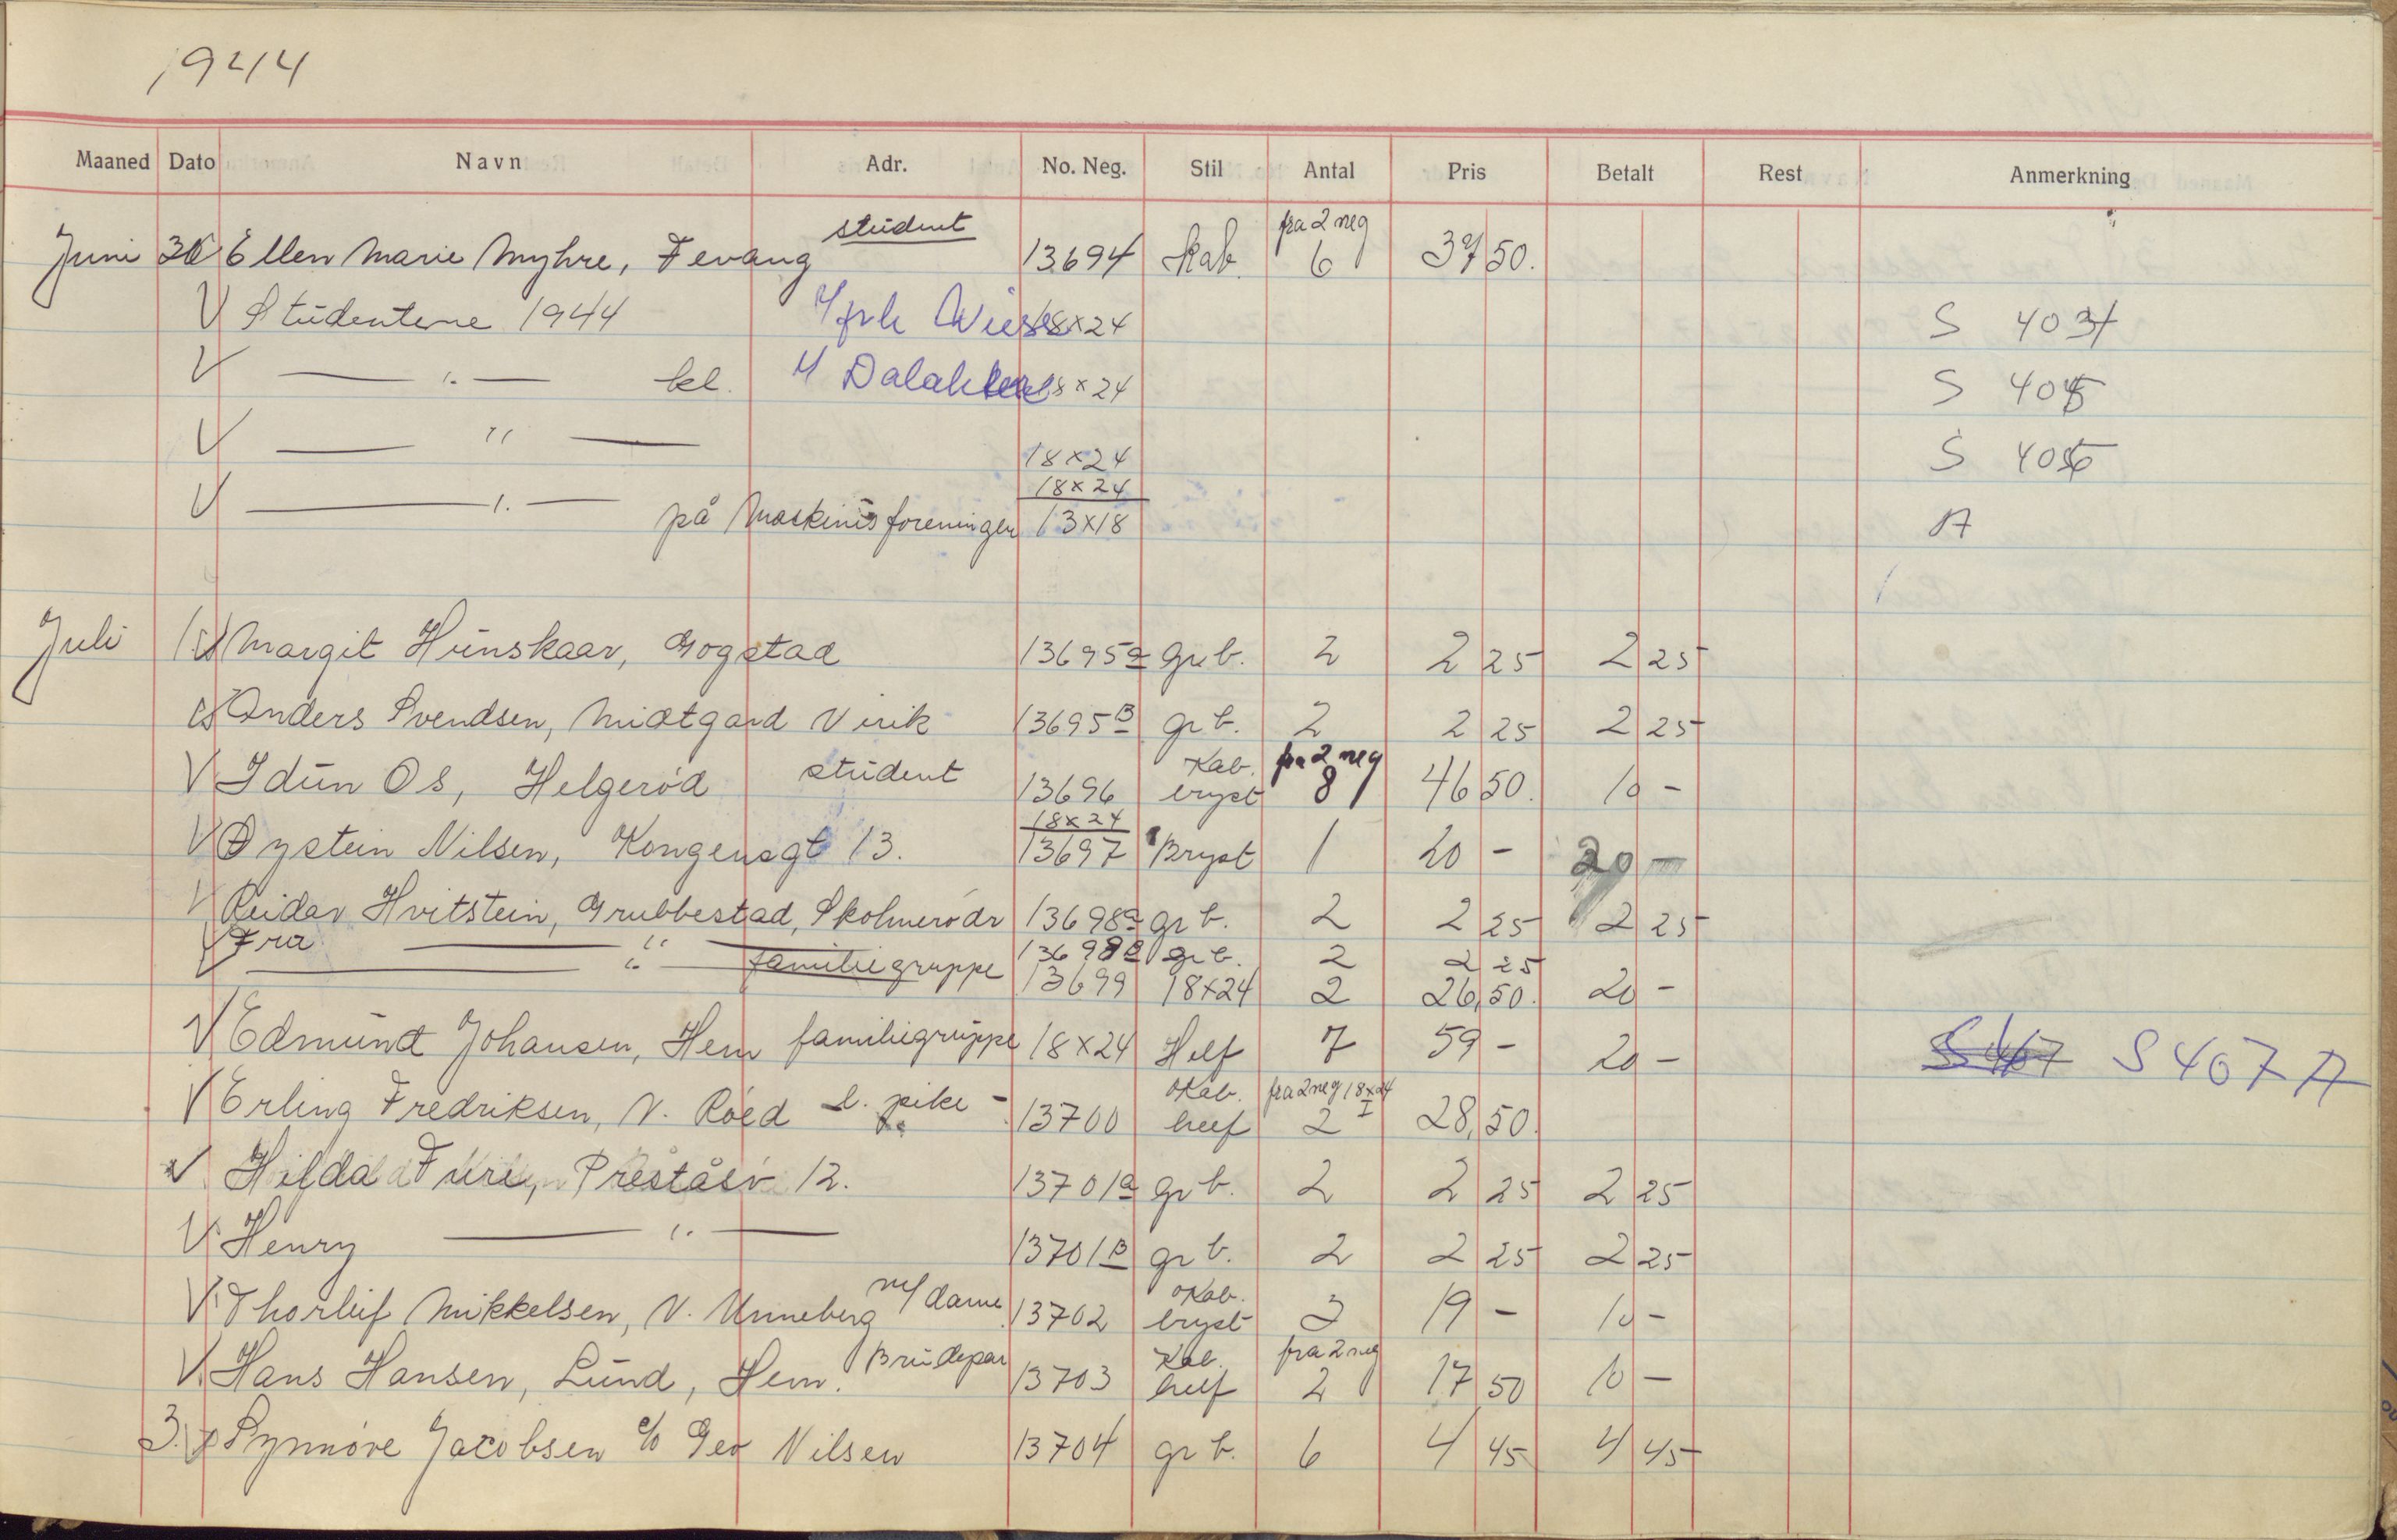 1944
Maaned Dato Navn Adr. No. Neg. Stil Antal Pris Betalt Rest Anmerkning
Juni 30 V Ellen Marie Myhre, Fevang student 13694 Kab. fra 2 neg 6 37 50.
V Studentene 1944 18x24 S 404
V — " — kl. 18x24 S 405
V — " — 18x24 S 406
V — " — på Maskinisforeningen 18x24 13x18 A
Juli 1. V Margit Hunskaar, Gogstad 13695a gr b. 2 2 25 2 25
V Anders Svendsen, Midtgard Virik 13695B gr b. 2 2 25 2 25
V Idun Os, Helgerød student 13696 Kab. bryst fra 2 neg 8 46 50. 10 -
V Øystein Nilsen, Kongensgt 13. 18x24 13697 Bryst 1 20 - 20 -
V Reidar Hvitstein, Grubbestad, Skolmerødr 13698a gr b. 2 2 25 2 25
V Fra — " — 13698B gr b. 2 2 25
V — " — familiegruppe 13699 18x24 2 26,50. 20 -
V Edmund Johansen, Hem familiegruppe 18x24 Helf 7 59 - 20 - S 407 S 407 A
V Erling Fredriksen, N. Røed l. pike - 13700 Kab. helf fra 2 neg 18x24 2 I 28,50.
V Hilda Furu, Preståsv 12. 13701a gr b. 2 2 25 2 25
V Henry — " — 13701B gr b. 2 2 25 2 25
V Thorleif Mikkelsen, N. Unneberg m/ dame 13702 Kab. bryst 3 19 - 10 -
V. Hans Hansen, Lund, Hem. Brudepar 13703 Kab. helf fra 2 neg 2 17 50 10 -
3. V Synnøve Jacobsen c/o Geo Nilsen 13704 gr b. 6 4 45 4 45